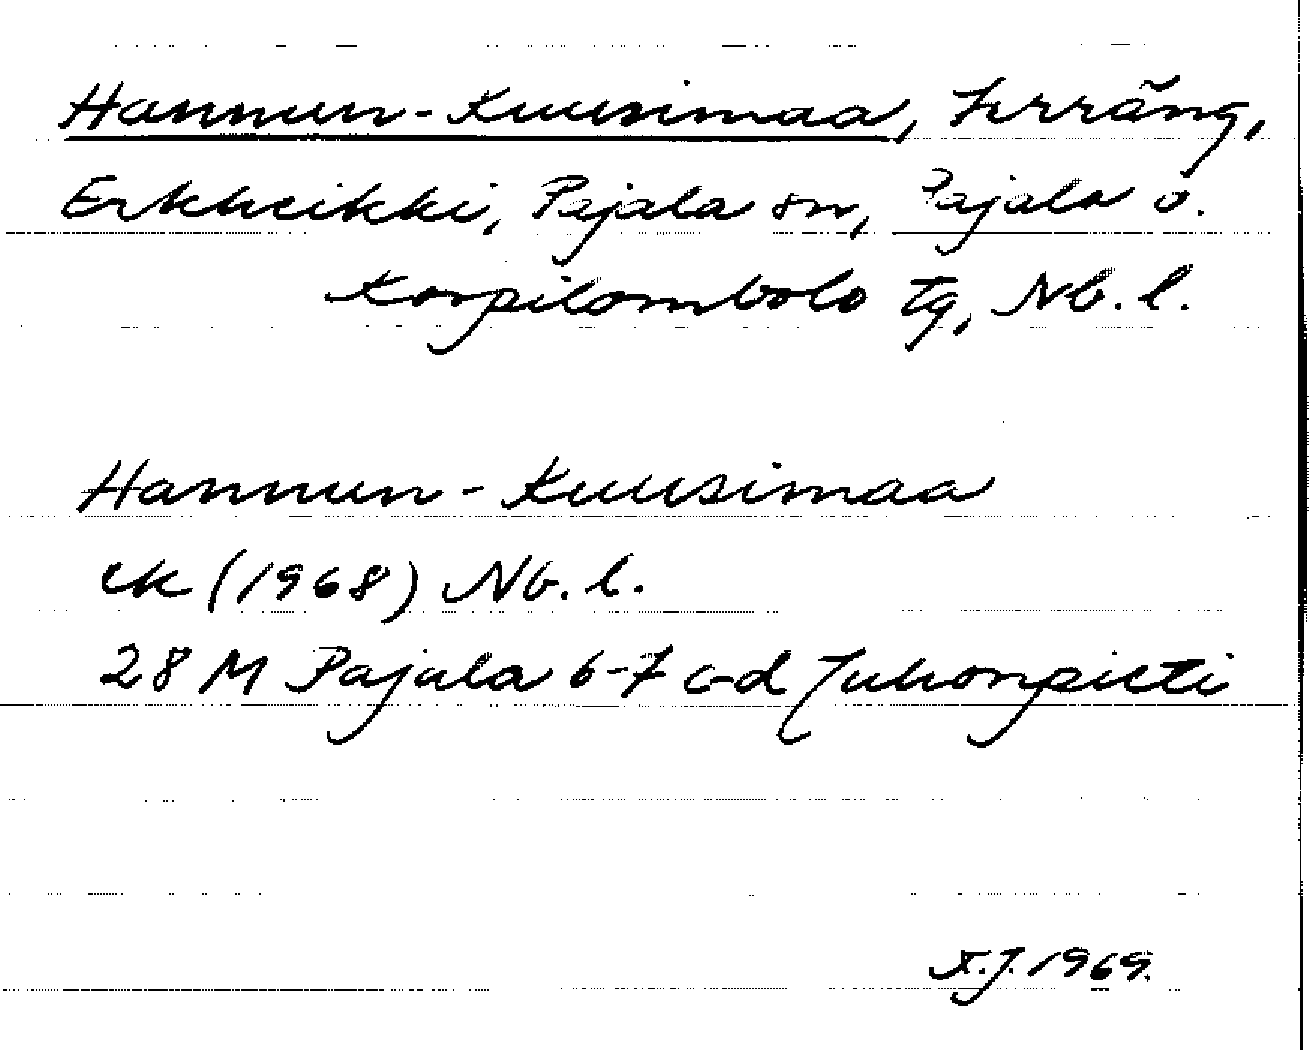 Hannun-Kuusimaa, terräng,
Erkheikki, Pajala sn, Pajala o.
Korpilombolo tg, Nb. l.
Hannun-Kuusimaa
ek (1968) Nb. l.
28 M Pajala 6-7 c-d Juhonpieti
K.J. 1969.